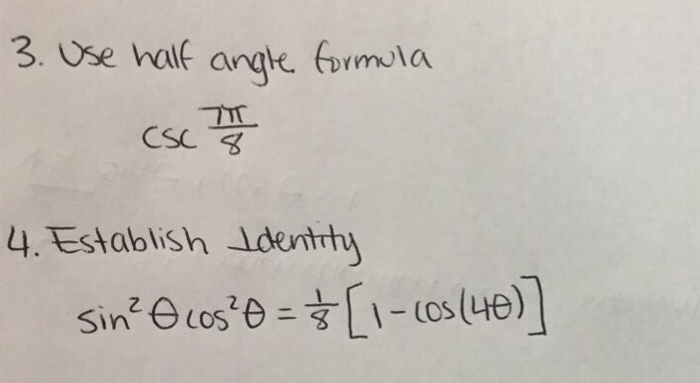 3. Use half angle formula
csc 7π/8
4. Establish Identity
sin²θcos²θ = 1/8 [1-cos(4θ)]